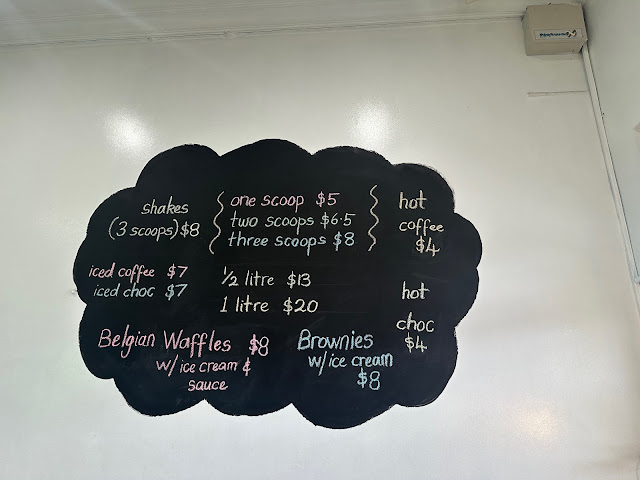 shakes
(3 scoops) $8
one scoop $5
two scoops $6.5
three scoops $8
hot
coffee
$4
iced coffee $7
iced choc $7
½ litre $13
1 litre $20
hot
choc
$4
Belgian Waffles $8
w/ ice cream &
sauce
Brownies
w/ ice cream
$8